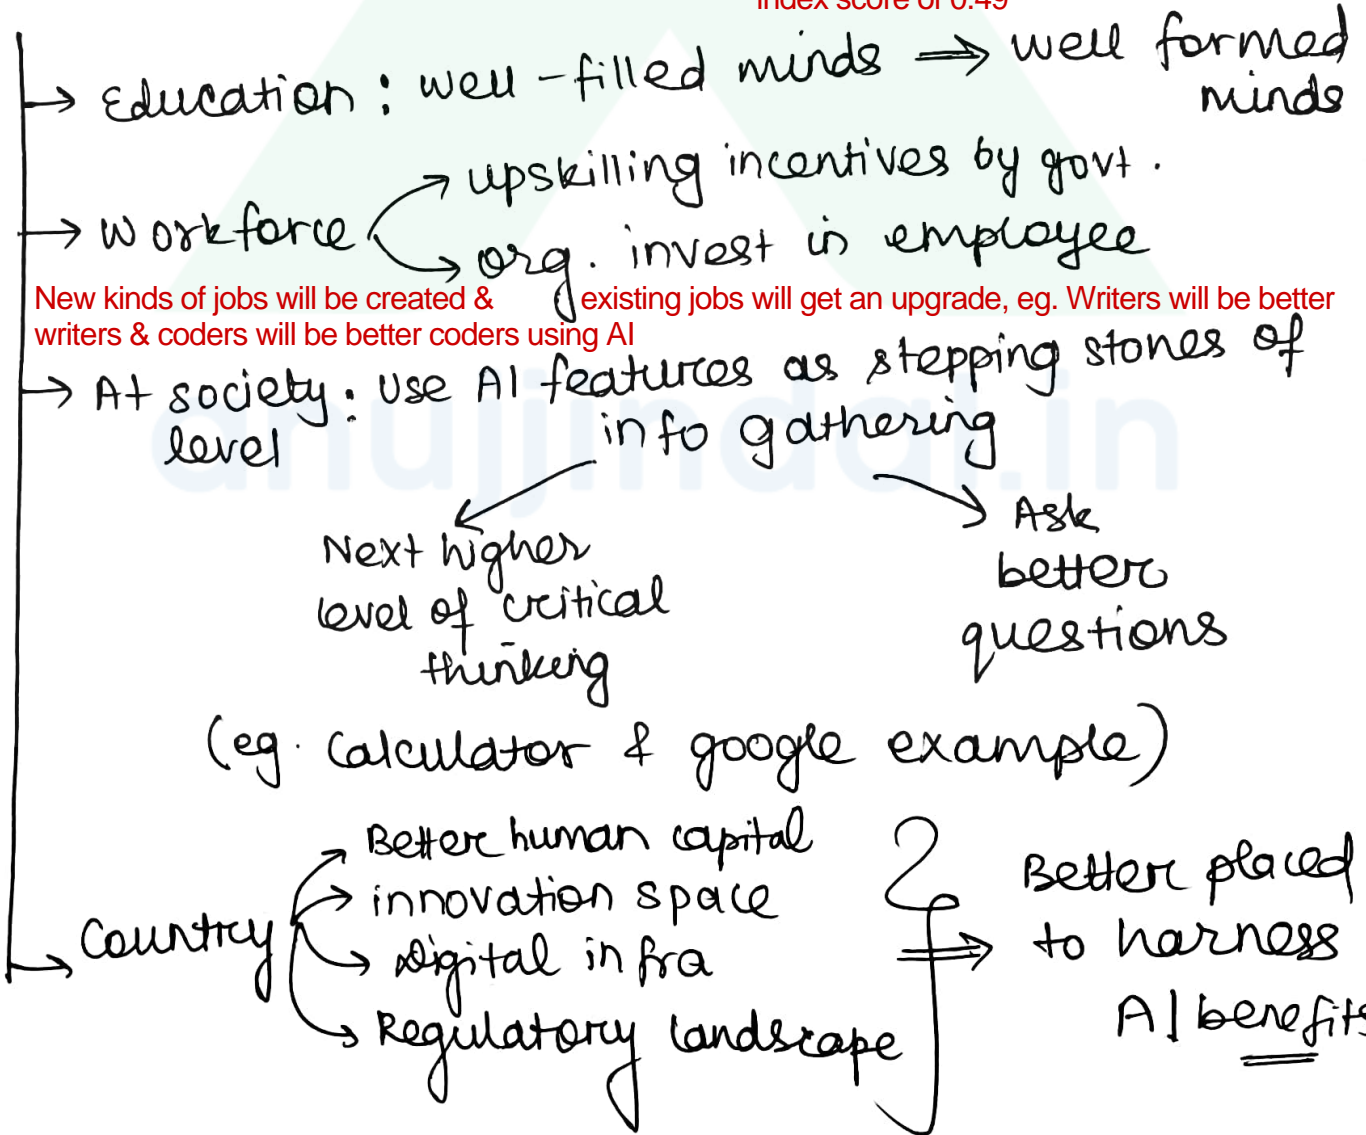 index score of 0.49
→ Education : well-filled minds ⟹ well formed
minds
→ Workforce → upskilling incentives by govt.
→ org. invest in employee
New kinds of jobs will be created & existing jobs will get an upgrade, eg. Writers will be better
writers & coders will be better coders using AI
→ At society : Use AI features as stepping stones of
level info gathering
anujjindal.in
Next higher
level of critical
thinking
Ask
better
questions
(eg. Calculator & google example)
→ Country → Better human capital
→ innovation space
→ Digital infra
→ Regulatory landscape
⟹ Better placed
to harness
AI benefits